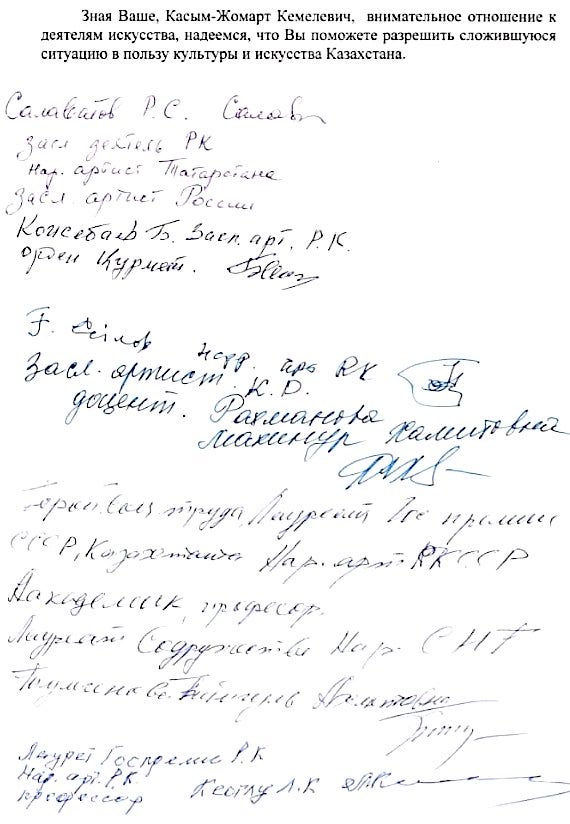 Зная Ваше, Касым-Жомарт Кемелевич, внимательное отношение к
деятелям искусства, надеемся, что Вы поможете разрешить сложившуюся
ситуацию в пользу культуры и искусства Казахстана.
Салаватов Р.С.
Засл деятель РК
Нар. артист Татарстана
Засл. артист России
Б. Засл. арт. Р.К.
орден Құрмет.
РК
Засл. артист. К.Р.
доцент. Рахманова
Хамитовна
труда, Лауреат Гос премии
СССР, Казахстана Нар. арт
профессор.
Лауреат Содружества Нар. СНГ
Лаурет Госпремии Р.К
Нар. арт. Р.К.
профессор Кестлу Л.К